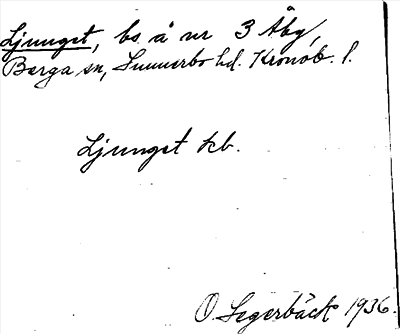 Ljunget, bs å nr 3 Åby,
Berga sn, Sunnerbo hd. Kronob. l.
Ljunget kb.
O. Segerbäck 1936.